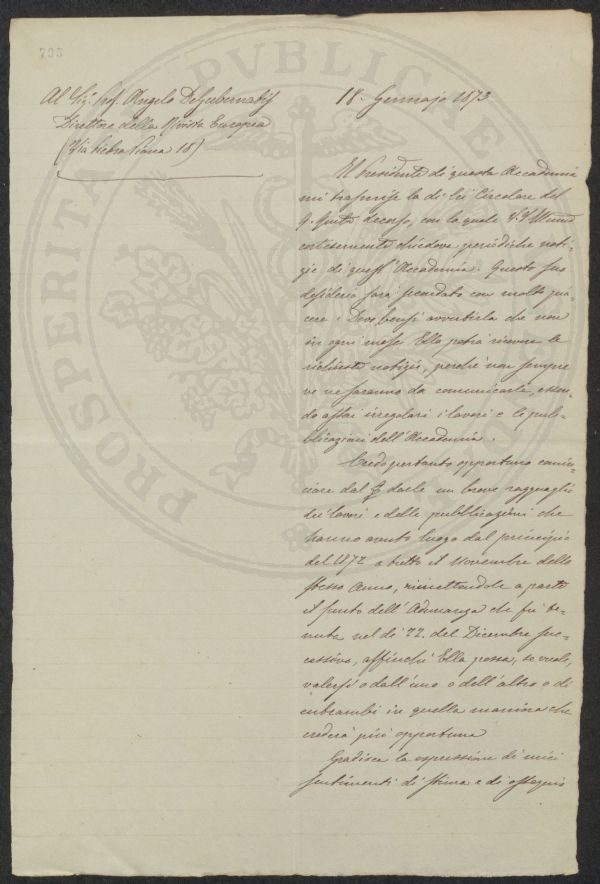 795
Al Sig. Prof. Angelo DeGubernatis
Direttore della Rivista Europea
(Via Pietra Piana 18)
18. Gennajo 1873
Il Presidente di questa Accademia
mi trasferisce la di Lei Circolare del
9. decorso, con la quale V.S. Illma
cortesemente chiedeva periodiche noti-
zie di quest'Accademia. Questo suo
desiderio sarà secondato con molto pia-
cere: Devo bensì avvertirla che non
in ogni mese Ella potrà ricevere le
richieste notizie, perchè non sempre
ve ne saranno da comunicarle, essen-
do assai irregolari i lavori e le pub-
blicazioni dell'Accademia.
Credo pertanto opportuno comin-
ciare dal darle un breve ragguaglio
dei lavori e delle pubblicazioni che
hanno avuto luogo dal principio
del 1872 a tutto il Novembre dello
stesso Anno, rimettendole a parte
il sunto dell'Adunanza che fu te-
nuta nel dì 22. del Dicembre suc-
cessivo, affinchè Ella possa, se vuole,
valersi o dall'uno o dell'altro o di
entrambi in quella maniera che
crederà più opportuna
Gradisca la espressione di miei
sentimenti di stima e di ossequio
PROSPERITATI PUBLICAE